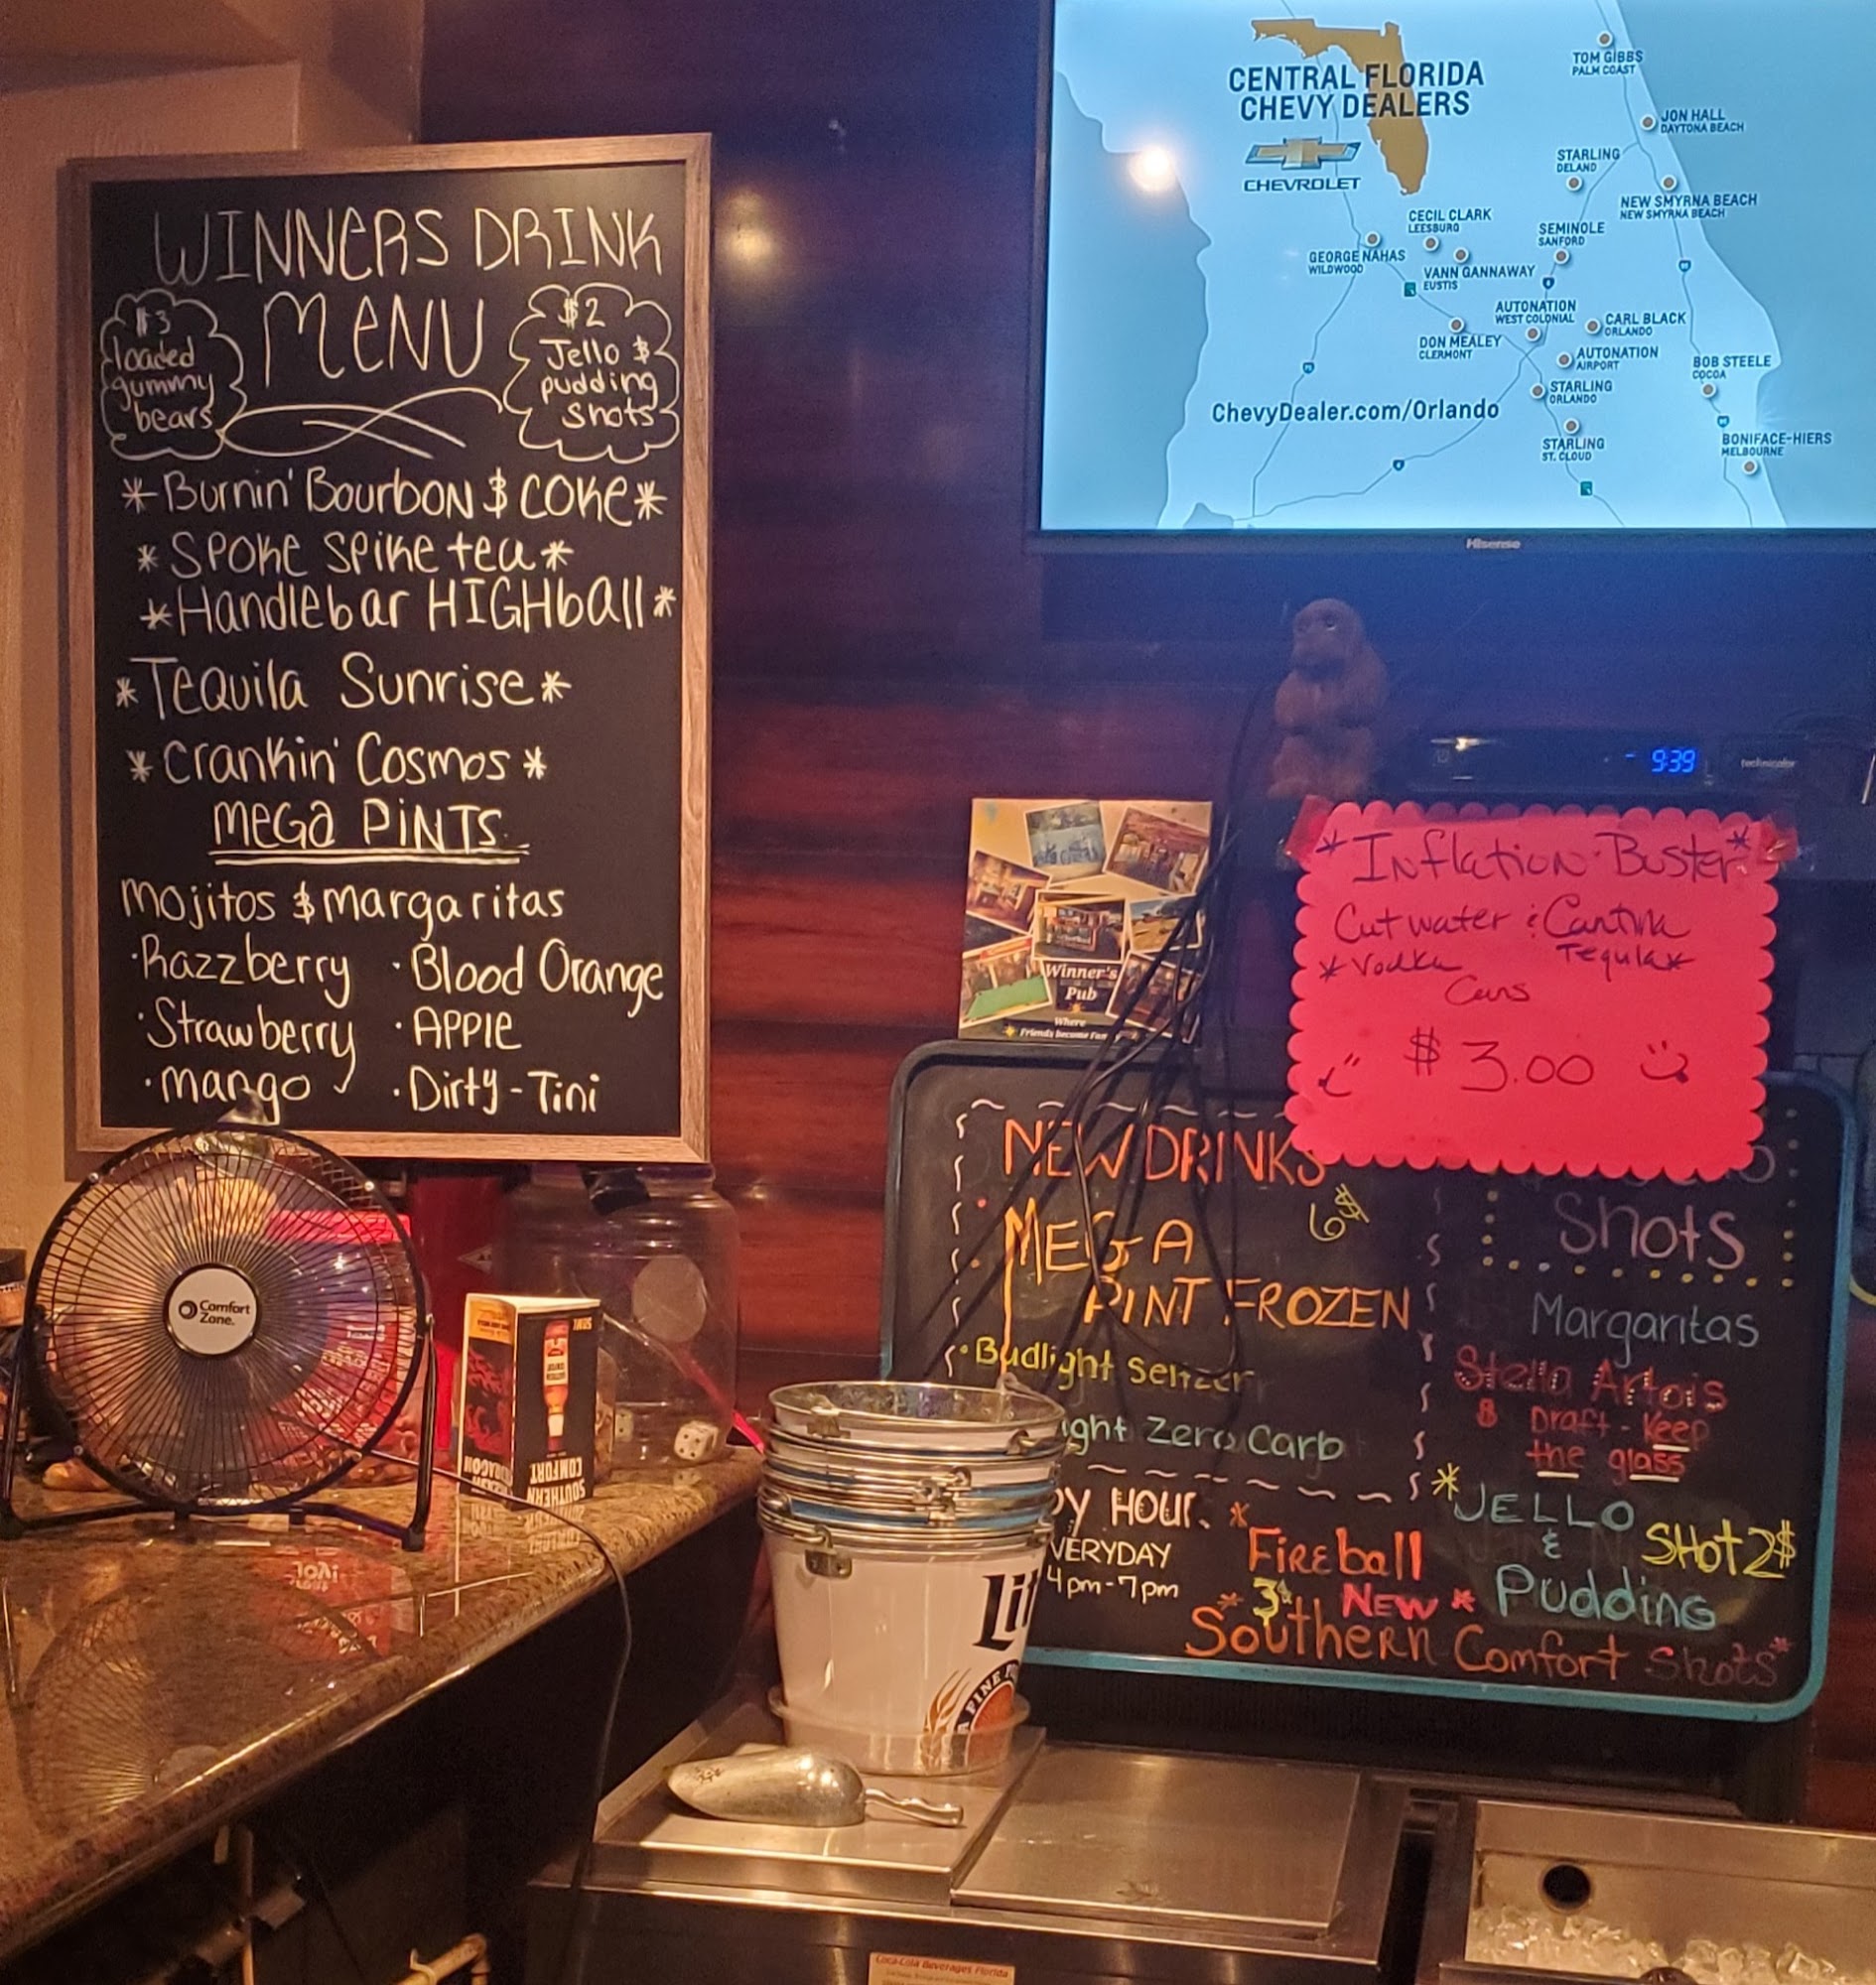 WINNERS DRINK
MENU
$3
loaded
gummy
bears
$2
Jello $
pudding
Shots
*Burnin' Bourbon $ COKE*
*Spoke Spike tea*
*Handlebar HIGHball*
*Tequila Sunrise*
*Crankin' Cosmos*
MEGA PINTS
Mojitos $ Margaritas
·Razzberry
·Strawberry
·Mango
·Blood Orange
·APPlE
·Dirty-Tini
CENTRAL FLORIDA
CHEVY DEALERS
CHEVROLET
TOM GIBBS
PALM COAST
JON HALL
DAYTONA BEACH
STARLING
DELAND
NEW SMYRNA BEACH
NEW SMYRNA BEACH
CECIL CLARK
LEESBURG
SEMINOLE
SANFORD
GEORGE NAHAS
WILDWOOD
VANN GANNAWAY
EUSTIS
AUTONATION
WEST COLONIAL
CARL BLACK
ORLANDO
DON MEALEY
CLERMONT
AUTONATION
AIRPORT
BOB STEELE
COCOA
STARLING
ORLANDO
ChevyDealer.com/Orlando
STARLING
ST. CLOUD
BONIFACE-HIERS
MELBOURNE
Hisense
9:39
technicolor
*Inflation Buster*
Cutwater & Cantina
*Vodka Tequla*
Cans
$3.00
Winner's
Pub
Where
Friends become
NEW DRINKS
6$
MEGA
PINT FROZEN
·Budlight Seltzer
ight Zero Carb
PY HOUR.
VERYDAY
4pm-7pm
Shots
Margaritas
Stella Artois
8 Draft - Keep
the glass
*JELLO
&
Pudding
SHOT 2$
*Fireball
3$
NEW *
*Southern Comfort Shots*
Comfort
Zone.
SOUTHERN
COMFORT
DRAGON
Lit
A FINE P
Coca-Cola Beverages Florida